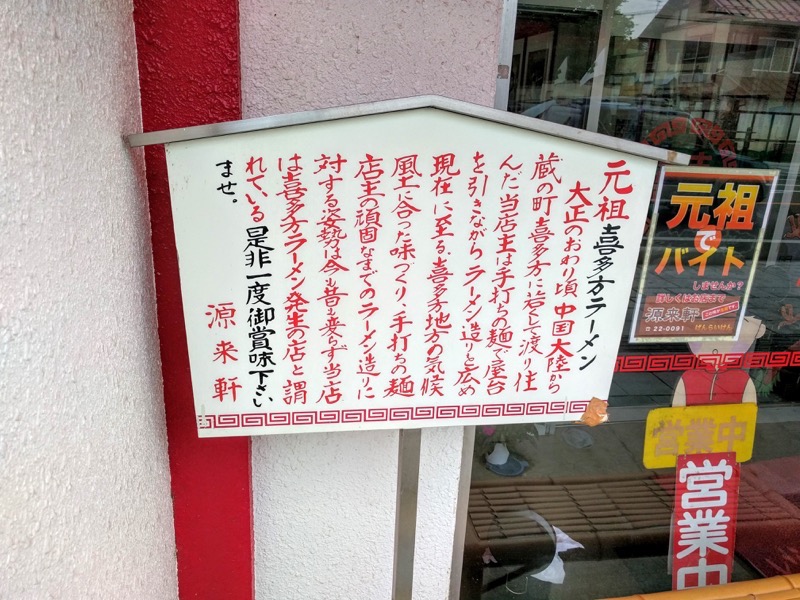 元祖 喜多方ラーメン
大正のおわり頃中国大陸から
蔵の町喜多方に若くして渡り住
んだ当店主は手打ちの麺で屋台
を引きながらラーメン造りを広め
現在に至る。喜多方地方の気候
風土に合った味づくり、手打ちの麺
店主の頑固なまでのラーメン造りに
対する姿勢は今も昔も変らず当店
は喜多方ラーメン発生の店と謂
れている 是非一度御賞味下さい
ませ。
源来軒
元祖
で
バイト
しませんか?
詳しくはお店まで
源来軒
☎22-0091
げんらいけん
営業中
営業中